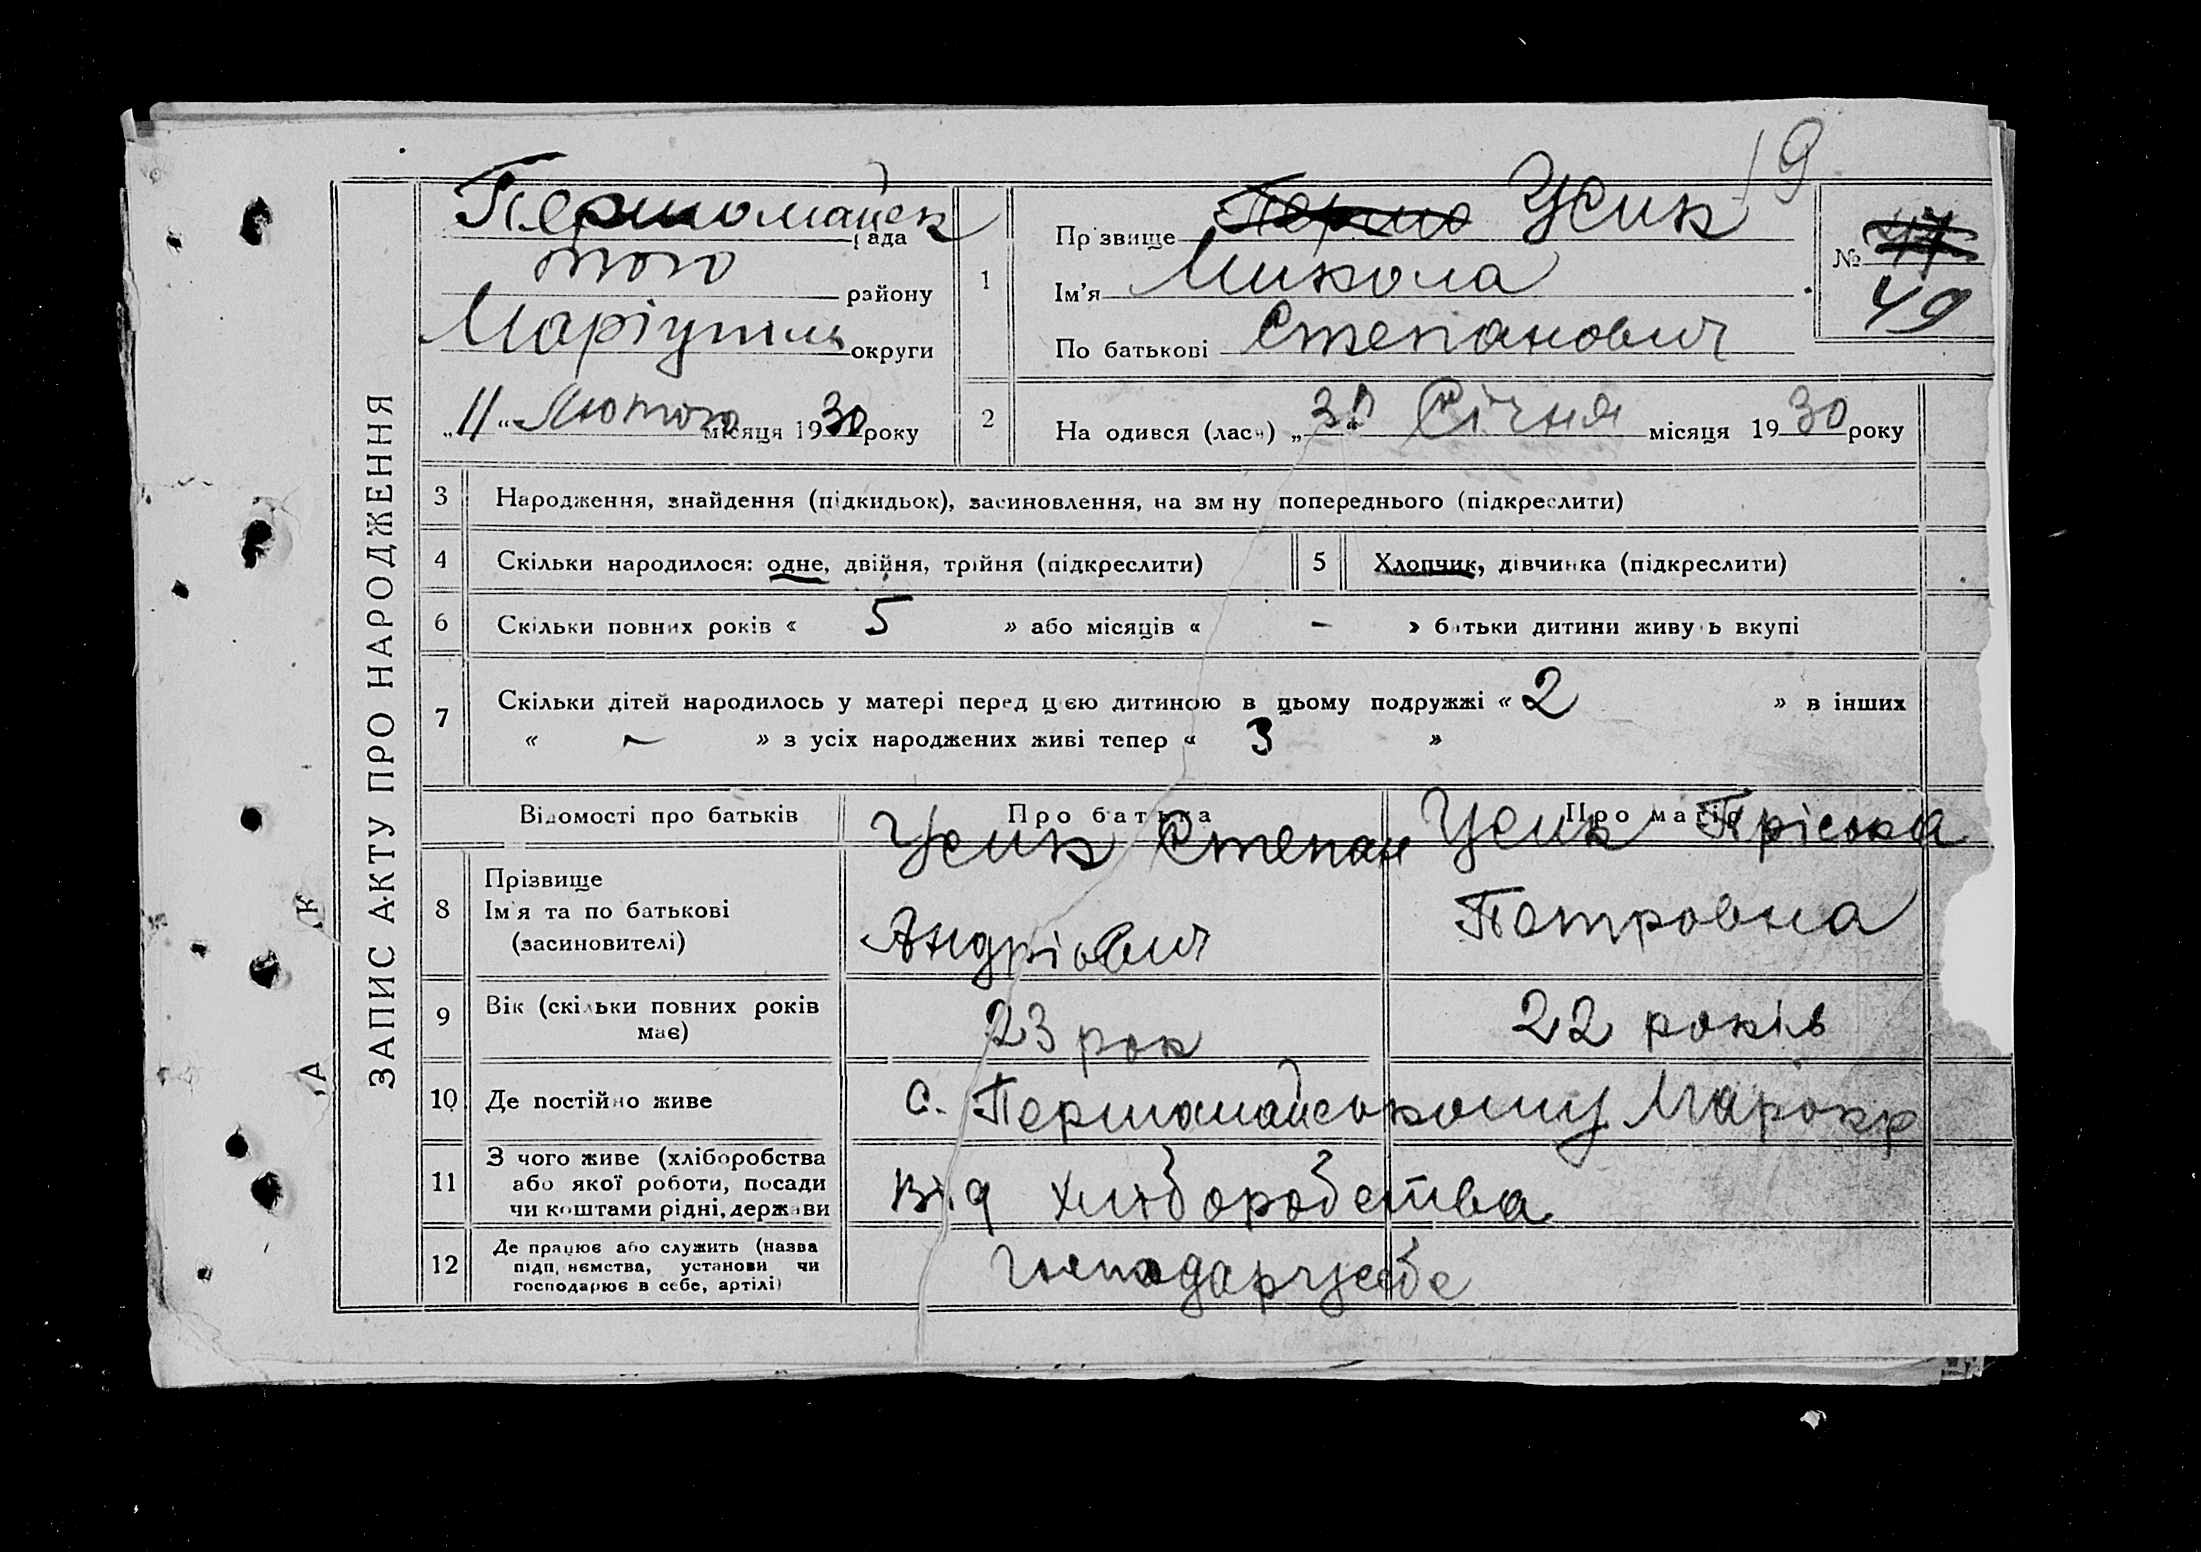 19
Першомайск рада
того району
Маріупіль округи
„11“ Лютого місяця 1930 року
ЗАПИС АКТУ ПРО НАРОДЖЕННЯ
1
Прізвище Першо Усик
Ім'я Микола
По батькові Степанович
№ 47
49
2 На одився (лась) „30 Січня місяця 1930 року
3 Народження, знайдення (підкидьок), засиновлення, на зм ну попереднього (підкреслити)
4 Скільки народилося: одне, двійня, трійня (підкреслити) 5 Хлопчик, дівчинка (підкреслити)
6 Скільки повних років « 5 » або місяців « - » батьки дитини живуть вкупі
7 Скільки дітей народилось у матері перед цією дитиною в цьому подружжі « 2 » в інших
« - » з усіх народжених живі тепер « 3 »
Відомості про батьків Про батька Про матір
8 Прізвище
Ім'я та по батькові
(засиновителі)
Усик Степан
Андріович
Усик Пріська
Петровна
9 Вік (скільки повних років
має)
23 рок 22 років
10 Де постійно живе с. Першомайському Марокр
11 З чого живе (хліборобства
або якої роботи, посади
чи коштами рідні, держави
від хліборобства
12 Де працює або служить (назва
підп, нємства, установи чи
господарює в себе, артілі)
К
А